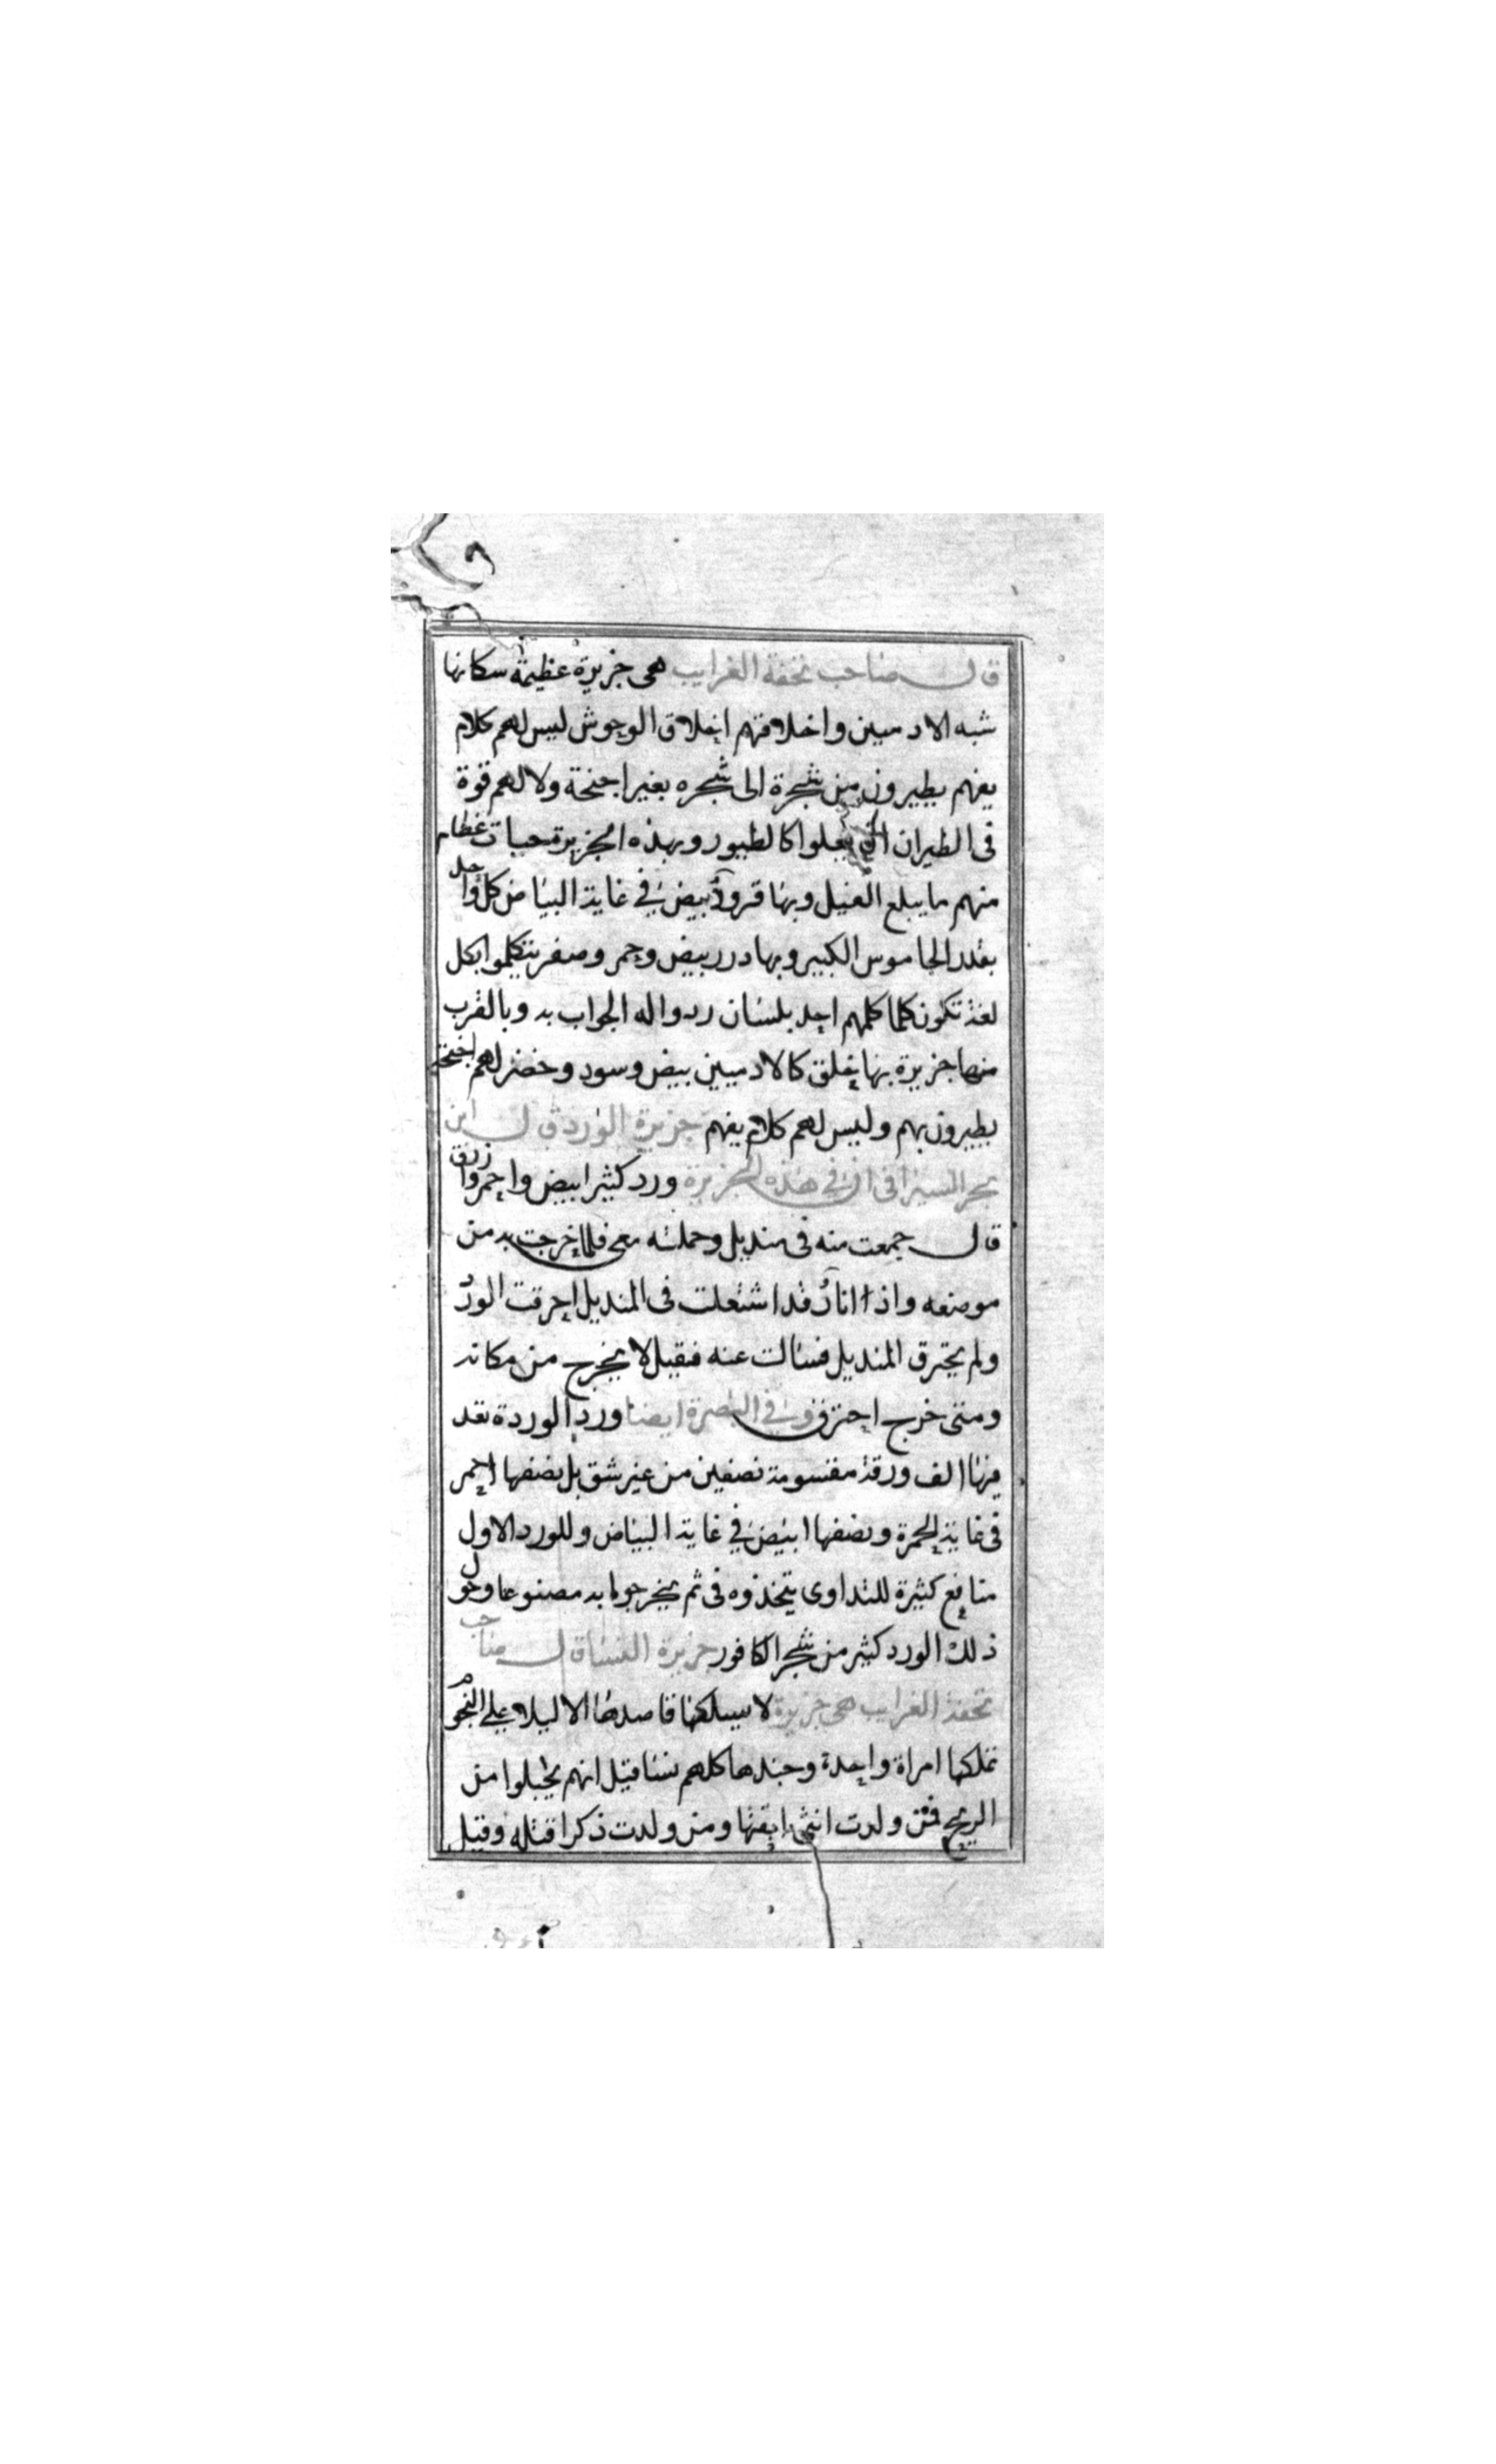 قال صاحب تحفة الغرايب هى جزيرة عظيمة سكانها
شبه الادميين واخلاقهم اخلاق الوحوش ليس لهم كلام
يفهم يطيرون من شجرة الى شجره بغير اجنحة ولا لهم قوة
فى الطيران يعلوا كالطيور وبهذه الجزيرة حيات عظام
منهم ما يبلع الفيل وبها قرود بيض فى غاية البياض كل واحد
بقدر الجاموس الكبير وبها درر بيض وحمر وصفر يتكلموا بكل
لغة تكون كلما كلمهم احد بلسان ردوا له الجواب به وبالقرب
منها جزيرة بها خلق كالادميين بيض وسود وخضر لهم اجنحة
يطيرون بهم وليس لهم كلام يفهم جزيرة الورد قال ابن
بحر السيرافى ان فى هذه الجزيرة ورد كثير ابيض واحمر وازرق
قال جمعت منه فى منديل وحملته معى فلما خرجت به من
موضعه واذا انا نار قد اشتعلت فى المنديل احرقت الورد
ولم يحترق المنديل فسالت عنه فقيل لا يخرج من مكانه
ومتى خرج احترق وفى البصرة ايضا ورد الوردة تعد
فيها الف ورقة مقسومة نصفين من غير شق بل نصفها احمر
فى غاية الحمرة ونصفها ابيض فى غاية البياض وللورد الاول
منافع كثيرة للتداوى يتخذوه فى ثم يخرجوا به مصنوعا وحول
ذلك الورد كثير من شجر الكافور جزيرة النسا قال صاحب
تحفة الغرايب هى جزيرة لا يسلكها قاصدها الا ليلا على النجوم
تملكها امراة واحدة وجندها كلهم نسا قيل انهم يحبلوا من
الريح فمن ولدت انثى ابقتها ومن ولدت ذكرا قتله وقيل